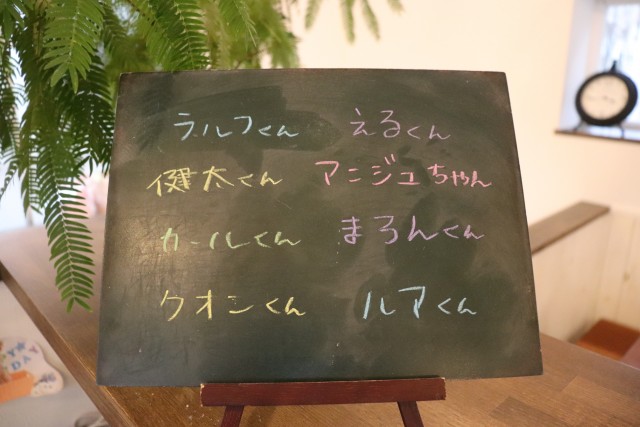 ラルフくん えるくん
健太くん アンジュちゃん
カールくん まろんくん
クオンくん ルアくん
DAY